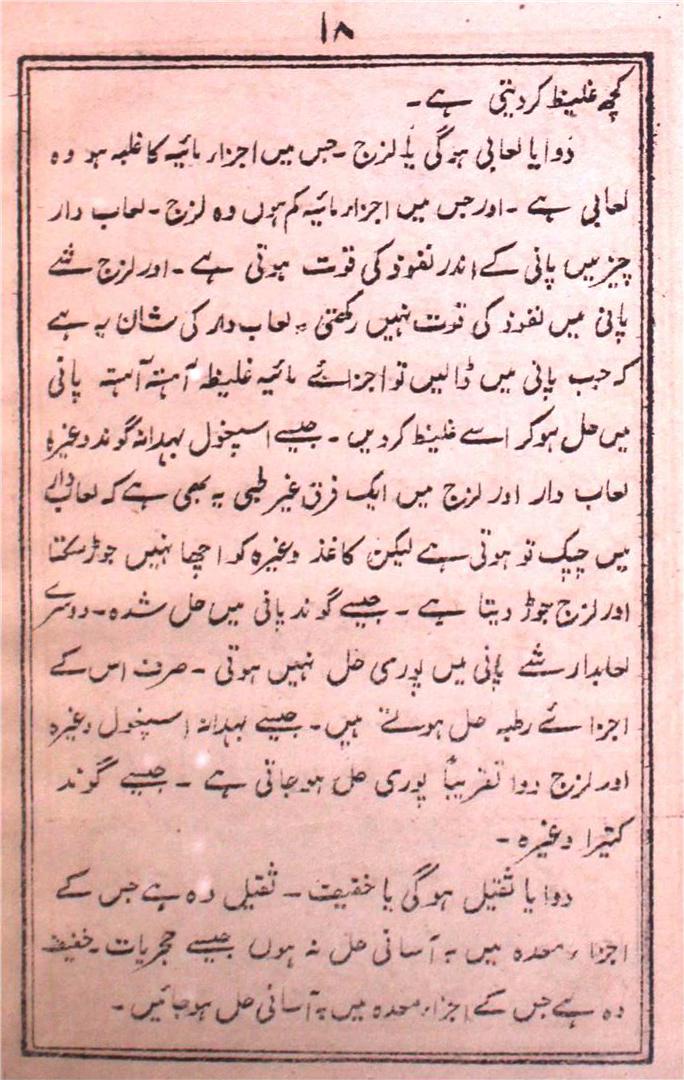 ۱۸
کچھ غلیظ کر دیتی ہے۔
دوا یا لعابی ہوگی یا لزج۔ جس میں اجزاء مائیہ کا غلبہ ہو وہ
لعابی ہے۔ اور جس میں اجزاء مائیہ کم ہوں وہ لزج۔ لعاب دار
چیز میں پانی کے اندر نفوذ کی قوت ہوتی ہے۔ اور لزج شے
پانی میں نفوذ کی قوت نہیں رکھتی۔ لعاب دار کی شان یہ ہے
کہ جب پانی میں ڈالیں تو اجزائے مائیہ غلیظہ آہستہ آہستہ پانی
میں حل ہو کر اسے غلیظ کر دیں۔ جیسے اسپغول بہدانہ گوند وغیرہ
لعاب دار اور لزج میں ایک فرق غیر طبی یہ بھی ہے کہ لعاب دار
میں چپک تو ہوتی ہے لیکن کاغذ وغیرہ کو اچھا نہیں جوڑ سکتا
اور لزج جوڑ دیتا ہے۔ جیسے گوند پانی میں حل شدہ۔ دوسرے
لعابدار شے پانی میں پوری حل نہیں ہوتی۔ صرف اس کے
اجزائے رطبہ حل ہوتے ہیں۔ جیسے بہدانہ اسپغول وغیرہ
اور لزج دوا تقریباً پوری حل ہو جاتی ہے۔ جیسے گوند
کتیرا وغیرہ۔
دوا یا ثقیل ہوگی یا خفیف۔ ثقیل وہ ہے جس کے
اجزاء معدہ میں بہ آسانی حل نہ ہوں جیسے حجریات۔ خفیف
وہ ہے جس کے اجزاء معدہ میں بہ آسانی حل ہو جائیں۔